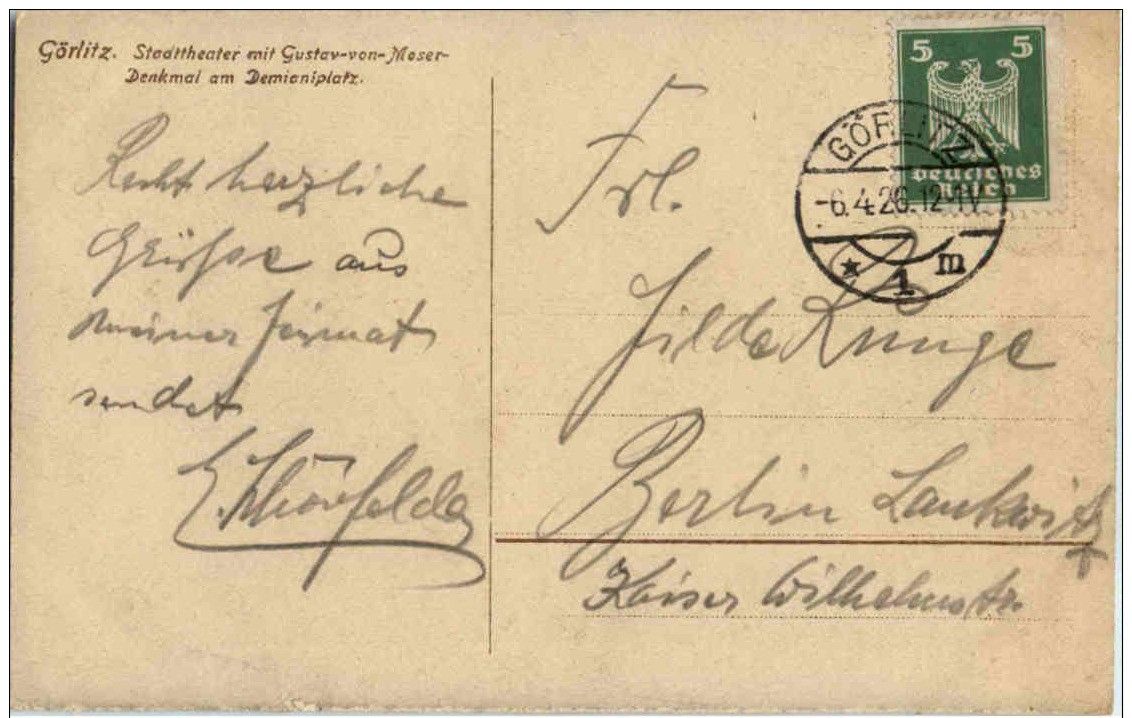 Görlitz. Stadttheater mit Gustav-von-Moser-
Denkmal am Demianiplatz.
Recht herzliche
Grüsse aus
meiner Heimat
sendet
E. Schönfelder
5 5
Deutsches
Reich
GÖRLITZ
-6.4.26.12-1V.
* 1 m
Frl.
Hilde Runge
Berlin Lankwitz
Kaiser Wilhelmstr.